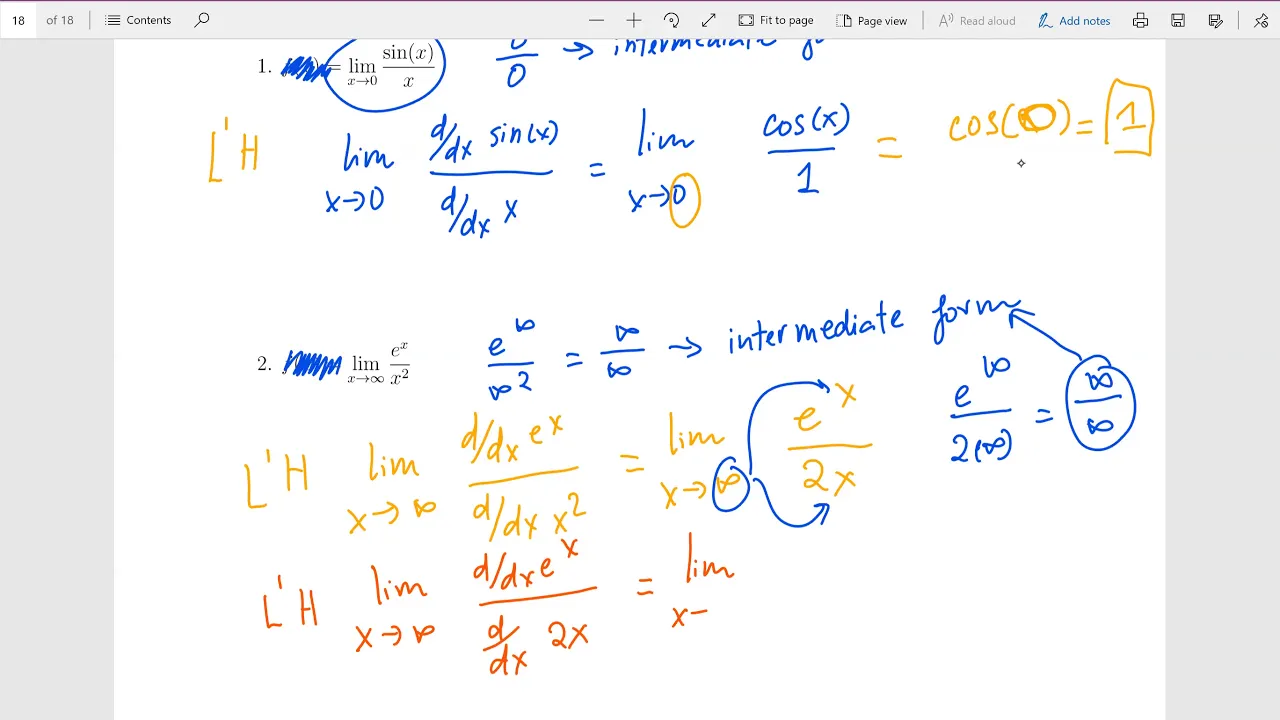 18 of 18 Contents Fit to page Page view Read aloud Add notes
0/0 → intermediate
1. = lim x→0 sin(x)/x
L'H lim x→0 d/dx sin(x) / d/dx x = lim x→0 cos(x)/1 = cos(0) = 1
2. lim x→∞ e^x/x^2 e^∞/∞^2 = ∞/∞ → intermediate form
e^∞/2(∞) = ∞/∞
L'H lim x→∞ d/dx e^x / d/dx x^2 = lim x→∞ e^x/2x
L'H lim x→∞ d/dx e^x / d/dx 2x = lim x-